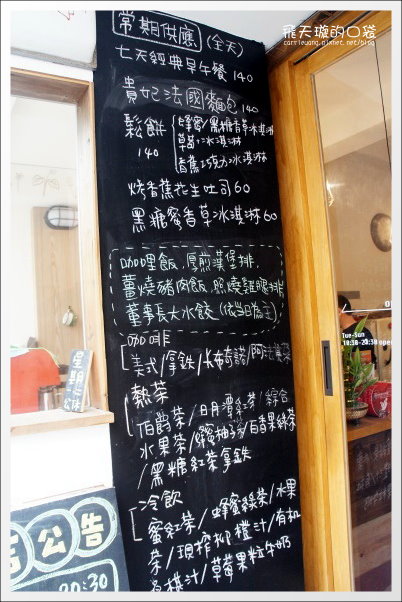 飛天璇的口袋
carrieyang.pixnet.net/blog
常期供應 (全天)
七天經典早午餐 140
貴妃法國麵包 140
鬆餅 140
蜂蜜/黑糖香草冰淇淋
草莓+冰淇淋
香蕉巧克力冰淇淋
烤香蕉花生吐司 60
黑糖蜜香草冰淇淋 60
咖哩飯、厚煎漢堡排、
薑燒豬肉飯、照燒雞腿排、
董事長大水餃 (依當日為主)
咖啡
美式/拿鐵/卡布奇諾/阿芙佳朵
熱茶
伯爵茶/日月潭紅茶/綜合
水果茶/蜂蜜柚子茶/百香果綠茶
/黑糖紅茶拿鐵
冷飲
蜜紅茶/蜂蜜綠茶/水果
茶/現榨柳橙汁/有機
桑椹汁/草莓果粒牛奶
星期
公休
公告
20:30
Tue-Sun
10:30-20:30 open